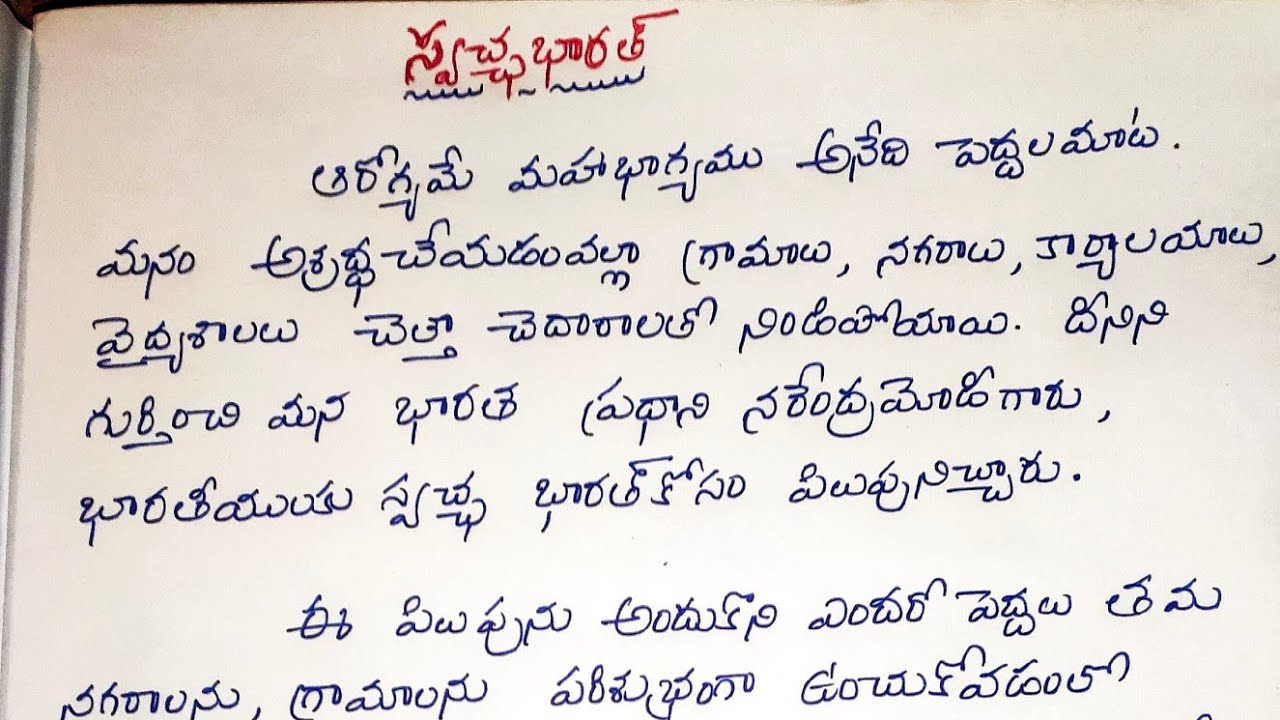 స్వచ్ఛభారత్
ఆరోగ్యమే మహాభాగ్యము అనేది పెద్దలమాట.
మనం అశ్రద్ధచేయడంవల్లా గ్రామాలు, నగరాలు, కార్యాలయాలు,
వైద్యశాలలు చెత్తా చెదారాలతో నిండిపోయాయి. దీనిని
గుర్తించి మన భారత ప్రధాని నరేంద్రమోడీగారు,
భారతీయులకు స్వచ్ఛ భారత్‌కోసం పిలుపునిచ్చారు.
ఈ పిలుపును అందుకొని ఎందరో పెద్దలు తమ
నగరాలను, గ్రామాలను పరిశుభ్రంగా ఉంచుకోవడంలో